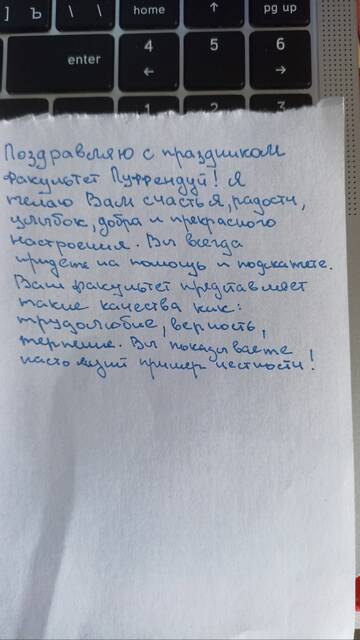 ] Ъ \ \ home ↑ pg up
enter 4 ← 5 6 →
1 2 3
Поздравляю с праздником
факультет Пуффендуй! Я
желаю Вам счастья, радости,
улыбок, добра и прекрасного
настроения. Вы всегда
придете на помощь и подскажете.
Ваш факультет представляет
такие качества как:
трудолюбие, верность,
терпение. Вы показываете
настоящий пример честности!